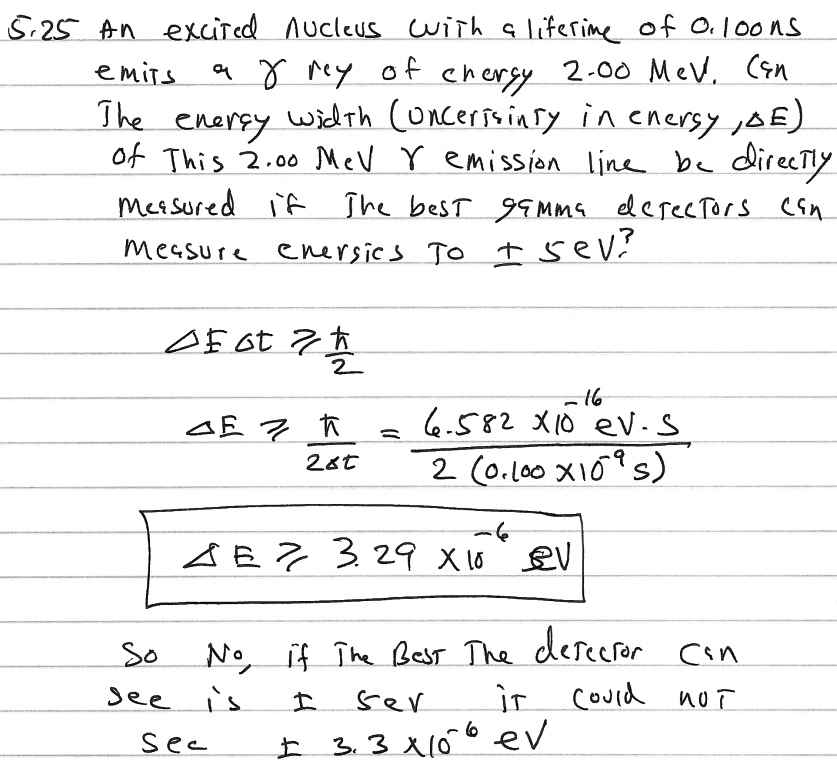 5.25 An excited nucleus with a lifetime of 0.100ns
emits a γ ray of energy 2.00 MeV. Can
The energy width (uncertainty in energy, ΔE)
of This 2.00 MeV γ emission line be directly
measured if The best gamma detectors can
measure energies To ± 5 eV?
ΔE Δt ≥ ħ/2
ΔE ≥ ħ/2Δt = 6.582 ×10⁻¹⁶ eV·s / 2 (0.100 ×10⁻⁹ s)
ΔE ≥ 3.29 ×10⁻⁶ eV
So No, if The Best The detector can
see is ± 5ev it could not
see ± 3.3 ×10⁻⁶ eV